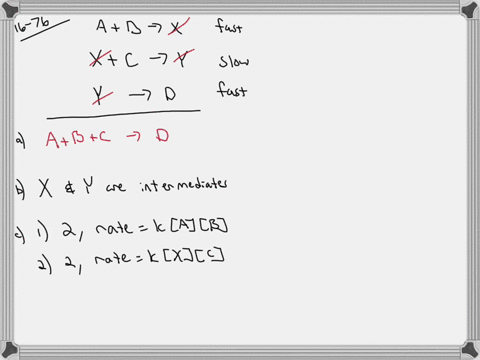 16-76
A + B → X fast
X + C → Y slow
Y → D fast
a) A + B + C → D
b) X & Y are intermediates
c) 1) 2, rate = k [A][B]
2) 2, rate = k [X][C]